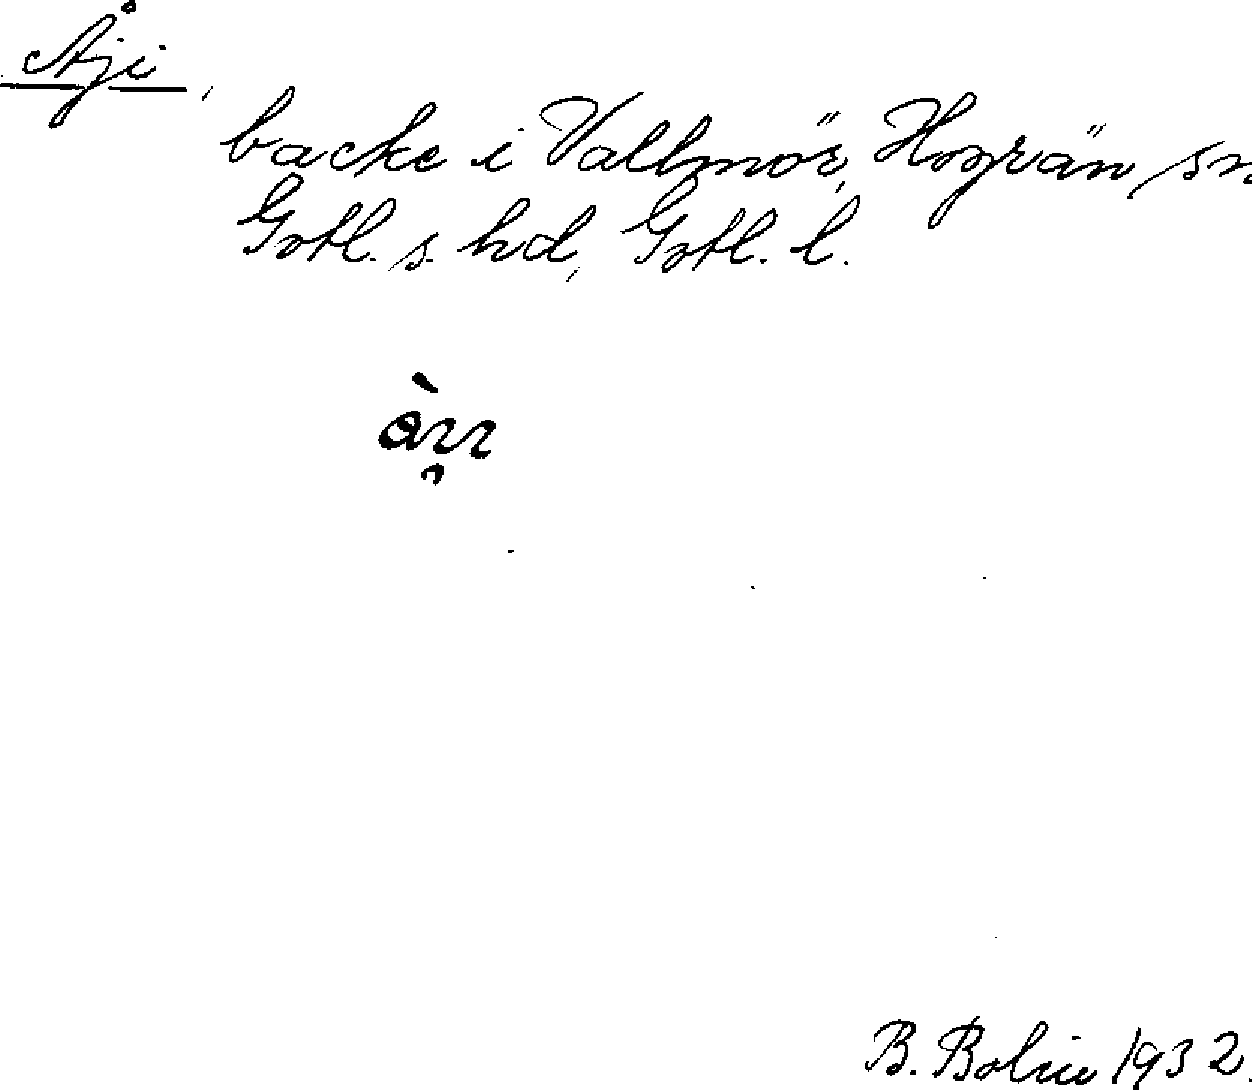 Åji,
backe i Vallmör, Hogrän sn.
Gotl. s. hd, Gotl. l.
B. Bolin 1932.